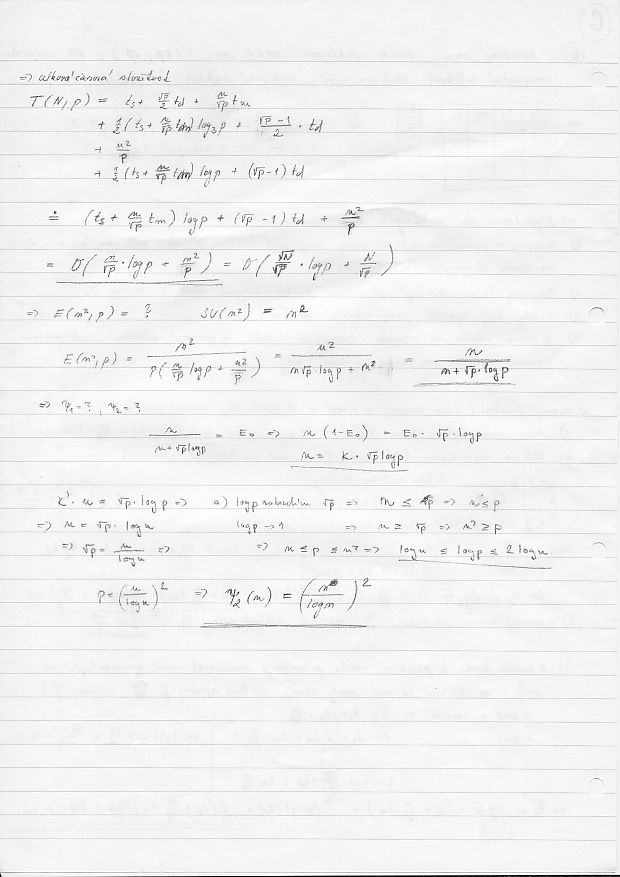 ⇒ celková časová složitost
T(N,p) = ts + √p/2 td + n/√p tm
+ 1/2 (ts + n/√p tm) log p + (√p-1)/2 · td
+ n²/p
+ 1/2 (ts + n/√p tm) log p + (√p-1) td
≐ (ts + n/√p tm) log p + (√p-1) td + n²/p
= O( n/√p · log p + n²/p ) = O( √N/√p · log p + N/√p )
⇒ E(n²,p) = ? SU(n²) = n²
E(n²,p) = n² / ( p( n/√p log p + n²/p ) ) = n² / ( n√p · log p + n² ) = n / ( n + √p · log p )
⇒ ψ₁ = ? , ψ₂ = ?
n / ( n + √p log p ) = E₀ ⇒ n (1-E₀) = E₀ · √p · log p
n = K · √p log p
K' · n = √p · log p ⇒ a) log p nahradím √p ⇒ n ≤ p ⇒ n ≤ p
⇒ n = √p · log n log p → 1 ⇒ n ≥ √p ⇒ n² ≥ p
⇒ √p = n / log n ⇒ ⇒ n ≤ p ≤ n² ⇒ log n ≤ log p ≤ 2 log n
p = ( n / log n )² ⇒ ψ₂(n) = ( n / log n )²